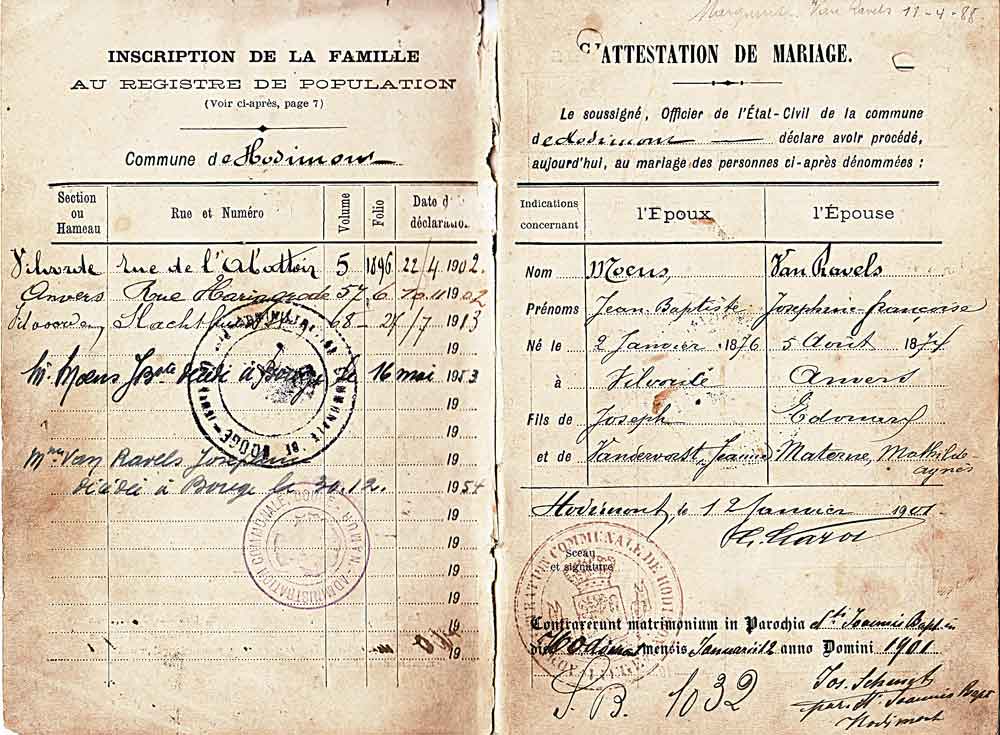 INSCRIPTION DE LA FAMILLE
AU REGISTRE DE POPULATION
(Voir ci-après, page 7)
Commune de Hodimont
Section ou Hameau
Rue et Numéro
Volume
Folio
Date de la déclaration
Vilvorde rue de l'Abattoir 5 1896 22/4 1902.
Anvers Rue 57 6 1902
68 - 25/7 1913
Mr. Moens Jbte décédé à Bouge le 16 mai 1953
19
19
Mme Van Ravels Josephine
décédée à Bouge le 30.12. 1954
19
19
19
19
19
19
ADMINISTRATION COMMUNALE DE BOUGE
ADMINISTRATION COMMUNALE NAMUR
Van Ravels 11-4-88
ATTESTATION DE MARIAGE.
Le soussigné, Officier de l'État-Civil de la commune
de Hodimont déclare avoir procédé,
aujourd'hui, au mariage des personnes ci-après dénommées :
Indications concernant
l'Epoux
l'Épouse
Nom Moens, Van Ravels
Prénoms Jean Baptiste Josephine françoise
Né le 2 Janvier 1876 5 Août
à Vilvorde Anvers
Fils de Joseph Edouard
et de Jeanne Materne, Mathilde
agnès
Hodimont, le 12 Janvier 1901
Sceau
et signature
Contraxerunt matrimonium in Parochia Sti Joannis Bapt. in
die Hodimont mensis Januarii 12 anno Domini 1901
S. B. 1032
Jos.
par. St Joannis Bapt
Hodimont